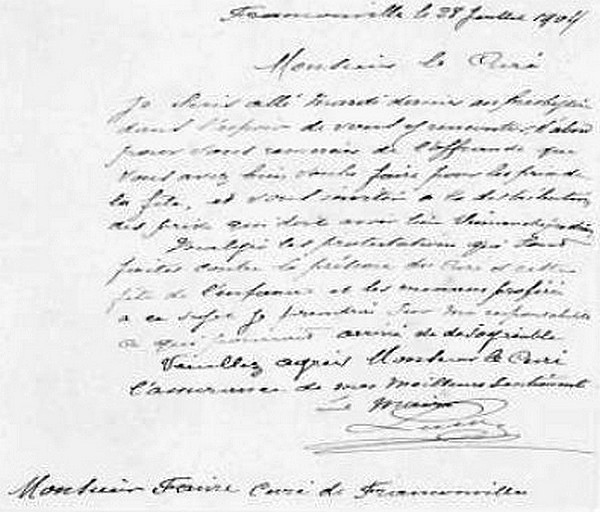 Franconville le 28 Juillet 1904
Monsieur le Curé
Je suis allé Mardi dernier au presbytère
dans l'espoir de vous y rencontrer d'abord
pour vous remercier de l'offrande que
vous avez bien voulu faire pour les prix de
la fête, et vous inviter à la distribution
des prix qui doit avoir lieu Dimanche
Malgré les protestations qui sont
faites contre la présence du Curé à cette
fête de l'enfance et les menaces
à ce sujet je prendrai sur ma responsabilité
ce qui pourrait arrivé de désagréable
Veuillez agréer Monsieur le Curé
l'assurance de mes meilleurs sentiments
Le Maire
Monsieur Faivre Curé de Franconville